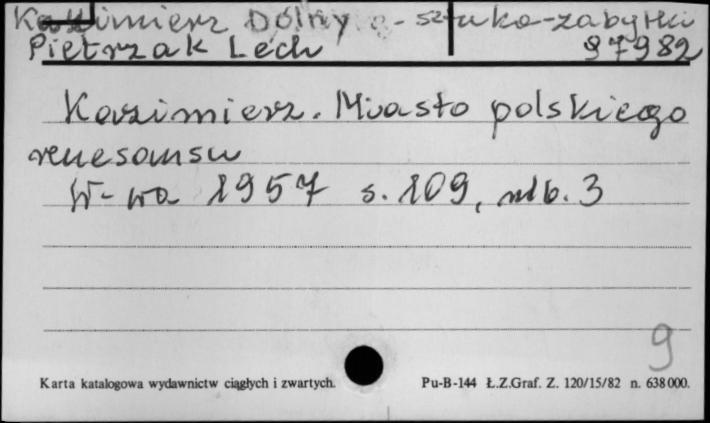 Kazimierz Dolny - sztuka-zabytki
Pietrzak Lech 97982
Kazimierz. Miasto polskiego
renesansu
W-wa 1957 s. 109, nlb. 3
9
Karta katalogowa wydawnictw ciągłych i zwartych. Pu-B-144 Ł.Z.Graf. Z. 120/15/82 n. 638000.